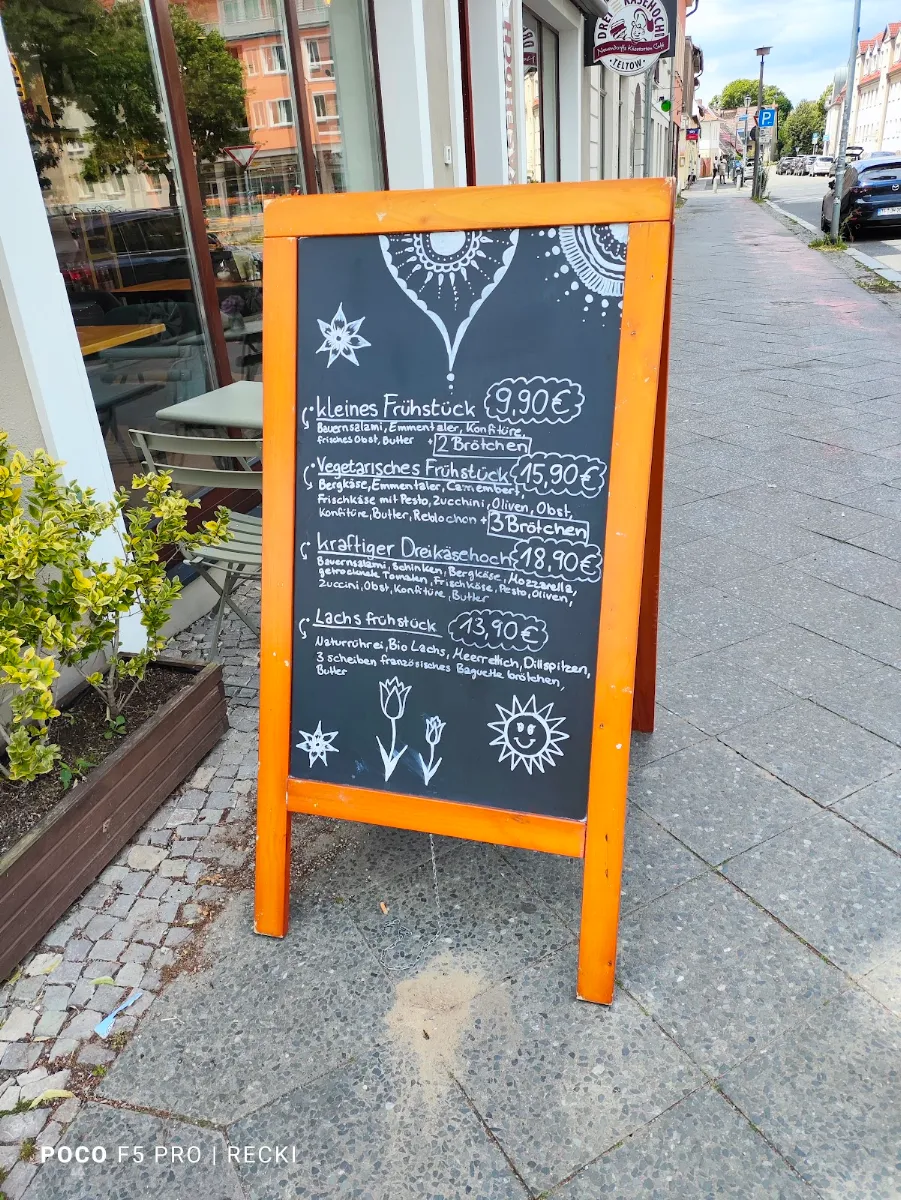 DREI KÄSEHOCH
TELTOW
P
kleines Frühstück 9,90€
Bauernsalami, Emmentaler, Konfitüre,
frisches Obst, Butter + 2 Brötchen
Vegetarisches Frühstück 15,90€
Bergkäse, Emmentaler, Camembert,
Frischkäse mit Pesto, Zucchini, Oliven, Obst,
Konfitüre, Butter, Reblochon + 3 Brötchen
kräftiger Dreikäsehoch 18,90€
Bauernsalami, Schinken, Bergkäse, Mozzarella,
getrocknete Tomaten, Frischkäse, Pesto, Oliven,
Zuccini, Obst, Konfitüre, Butter
Lachs frühstück 13,90€
Naturrührei, Bio Lachs, Meerrettich, Dillspitzen,
3 scheiben französisches Baguette brötchen,
Butter
POCO F5 PRO | RECKI